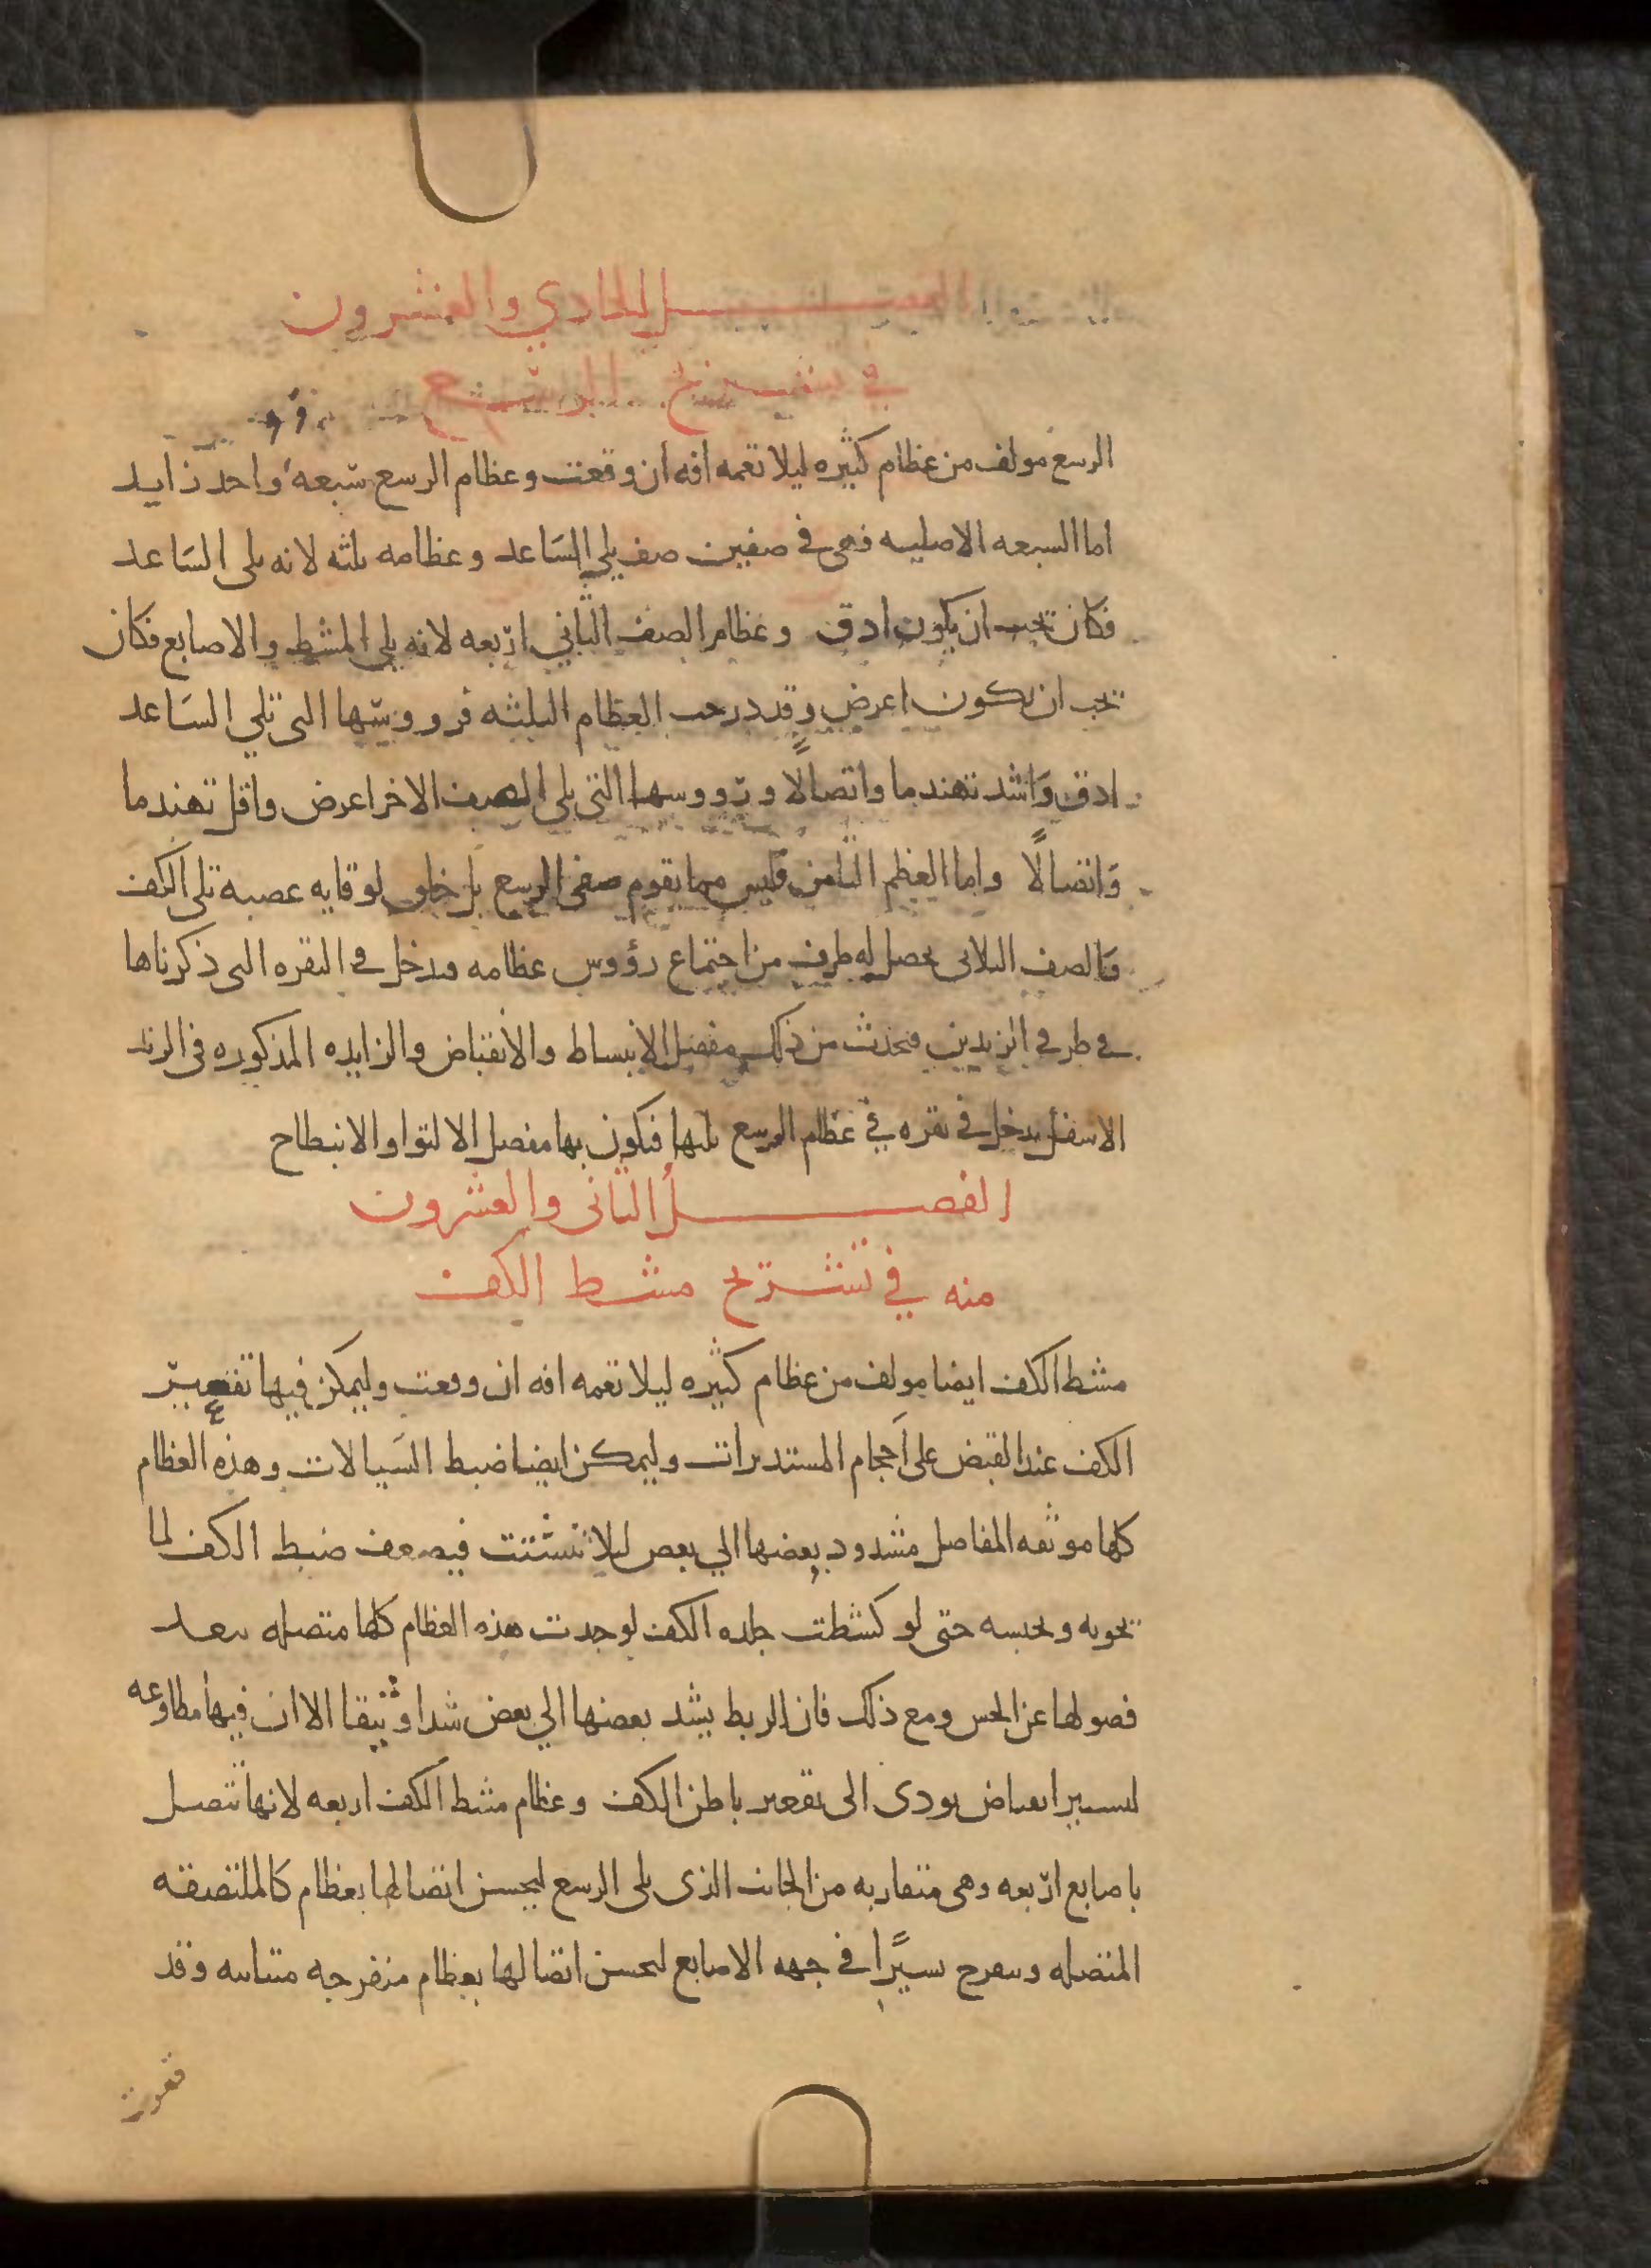 الفصل الحادي والعشرون
في تشريح الرسغ
الرسغ مولف من عظام كثيره ليلا تعمه افه ان وقعت وعظام الرسغ سبعه وواحد زايد
اما السبعه الاصليه فهي في صفين صف يلي الساعد وعظامه ثلثه لانه يلي الساعد
فكان يجب ان يكون ادق وعظام الصف الثاني اربعه لانه يلي المشط والاصابع فكان
يجب ان يكون اعرض وقد درجت العظام الثلثه فرووسها التي تلي الساعد
ادق واشد تهندما واتصالًا ورووسها التي يلي الصف الاخر اعرض واقل تهندما
واتصالًا واما العظم الثامن فليس مما يقوم صفي الرسغ بل خلق لوقايه عصبه تلي الكف
والصف الثلاثي يحصل له طرف من اجتماع رؤوس عظامه فيدخل في النقره التي ذكرناها
في طرفي الزندين فيحدث من ذلك مفصل الانبساط والانقباض والزايده المذكوره في الزند
الاسفل يدخل في نقره في عظام الرسغ يليها فيكون بها مفصل الالتوا والانبطاح
الفصل الثاني والعشرون
منه في تشريح مشط الكف
مشط الكف ايضا مولف من عظام كثيره ليلا تعمه افه ان وقعت وليمكن فيها تقعير
الكف عند القبض على احجام المستديرات وليمكن ايضا ضبط السيالات وهذه العظام
كلها موثقه المفاصل مشدود بعضها الي بعض ليلا تتشتت فيضعف ضبط الكف لما
يحويه ويحبسه حتى لو كشطت جلده الكف لوجدت هذه العظام كلها متصله يبعد
فصولها عن الحس ومع ذلك فان الربط يشد بعضها الي بعض شدا وثيقا الا ان فيها مطاوعه
ليسير انقباض يودى الى تقعير باطن الكف وعظام مشط الكف اربعه لانها تتصل
باصابع اربعه وهى متقاربه من الجانب الذى يلى الرسغ ليحسن اتصالها بعظام كالملتصقه
المتصله وينفرج يسيرًا في جهه الاصابع ليحسن اتصالها بعظام منفرجه متباينه وقد